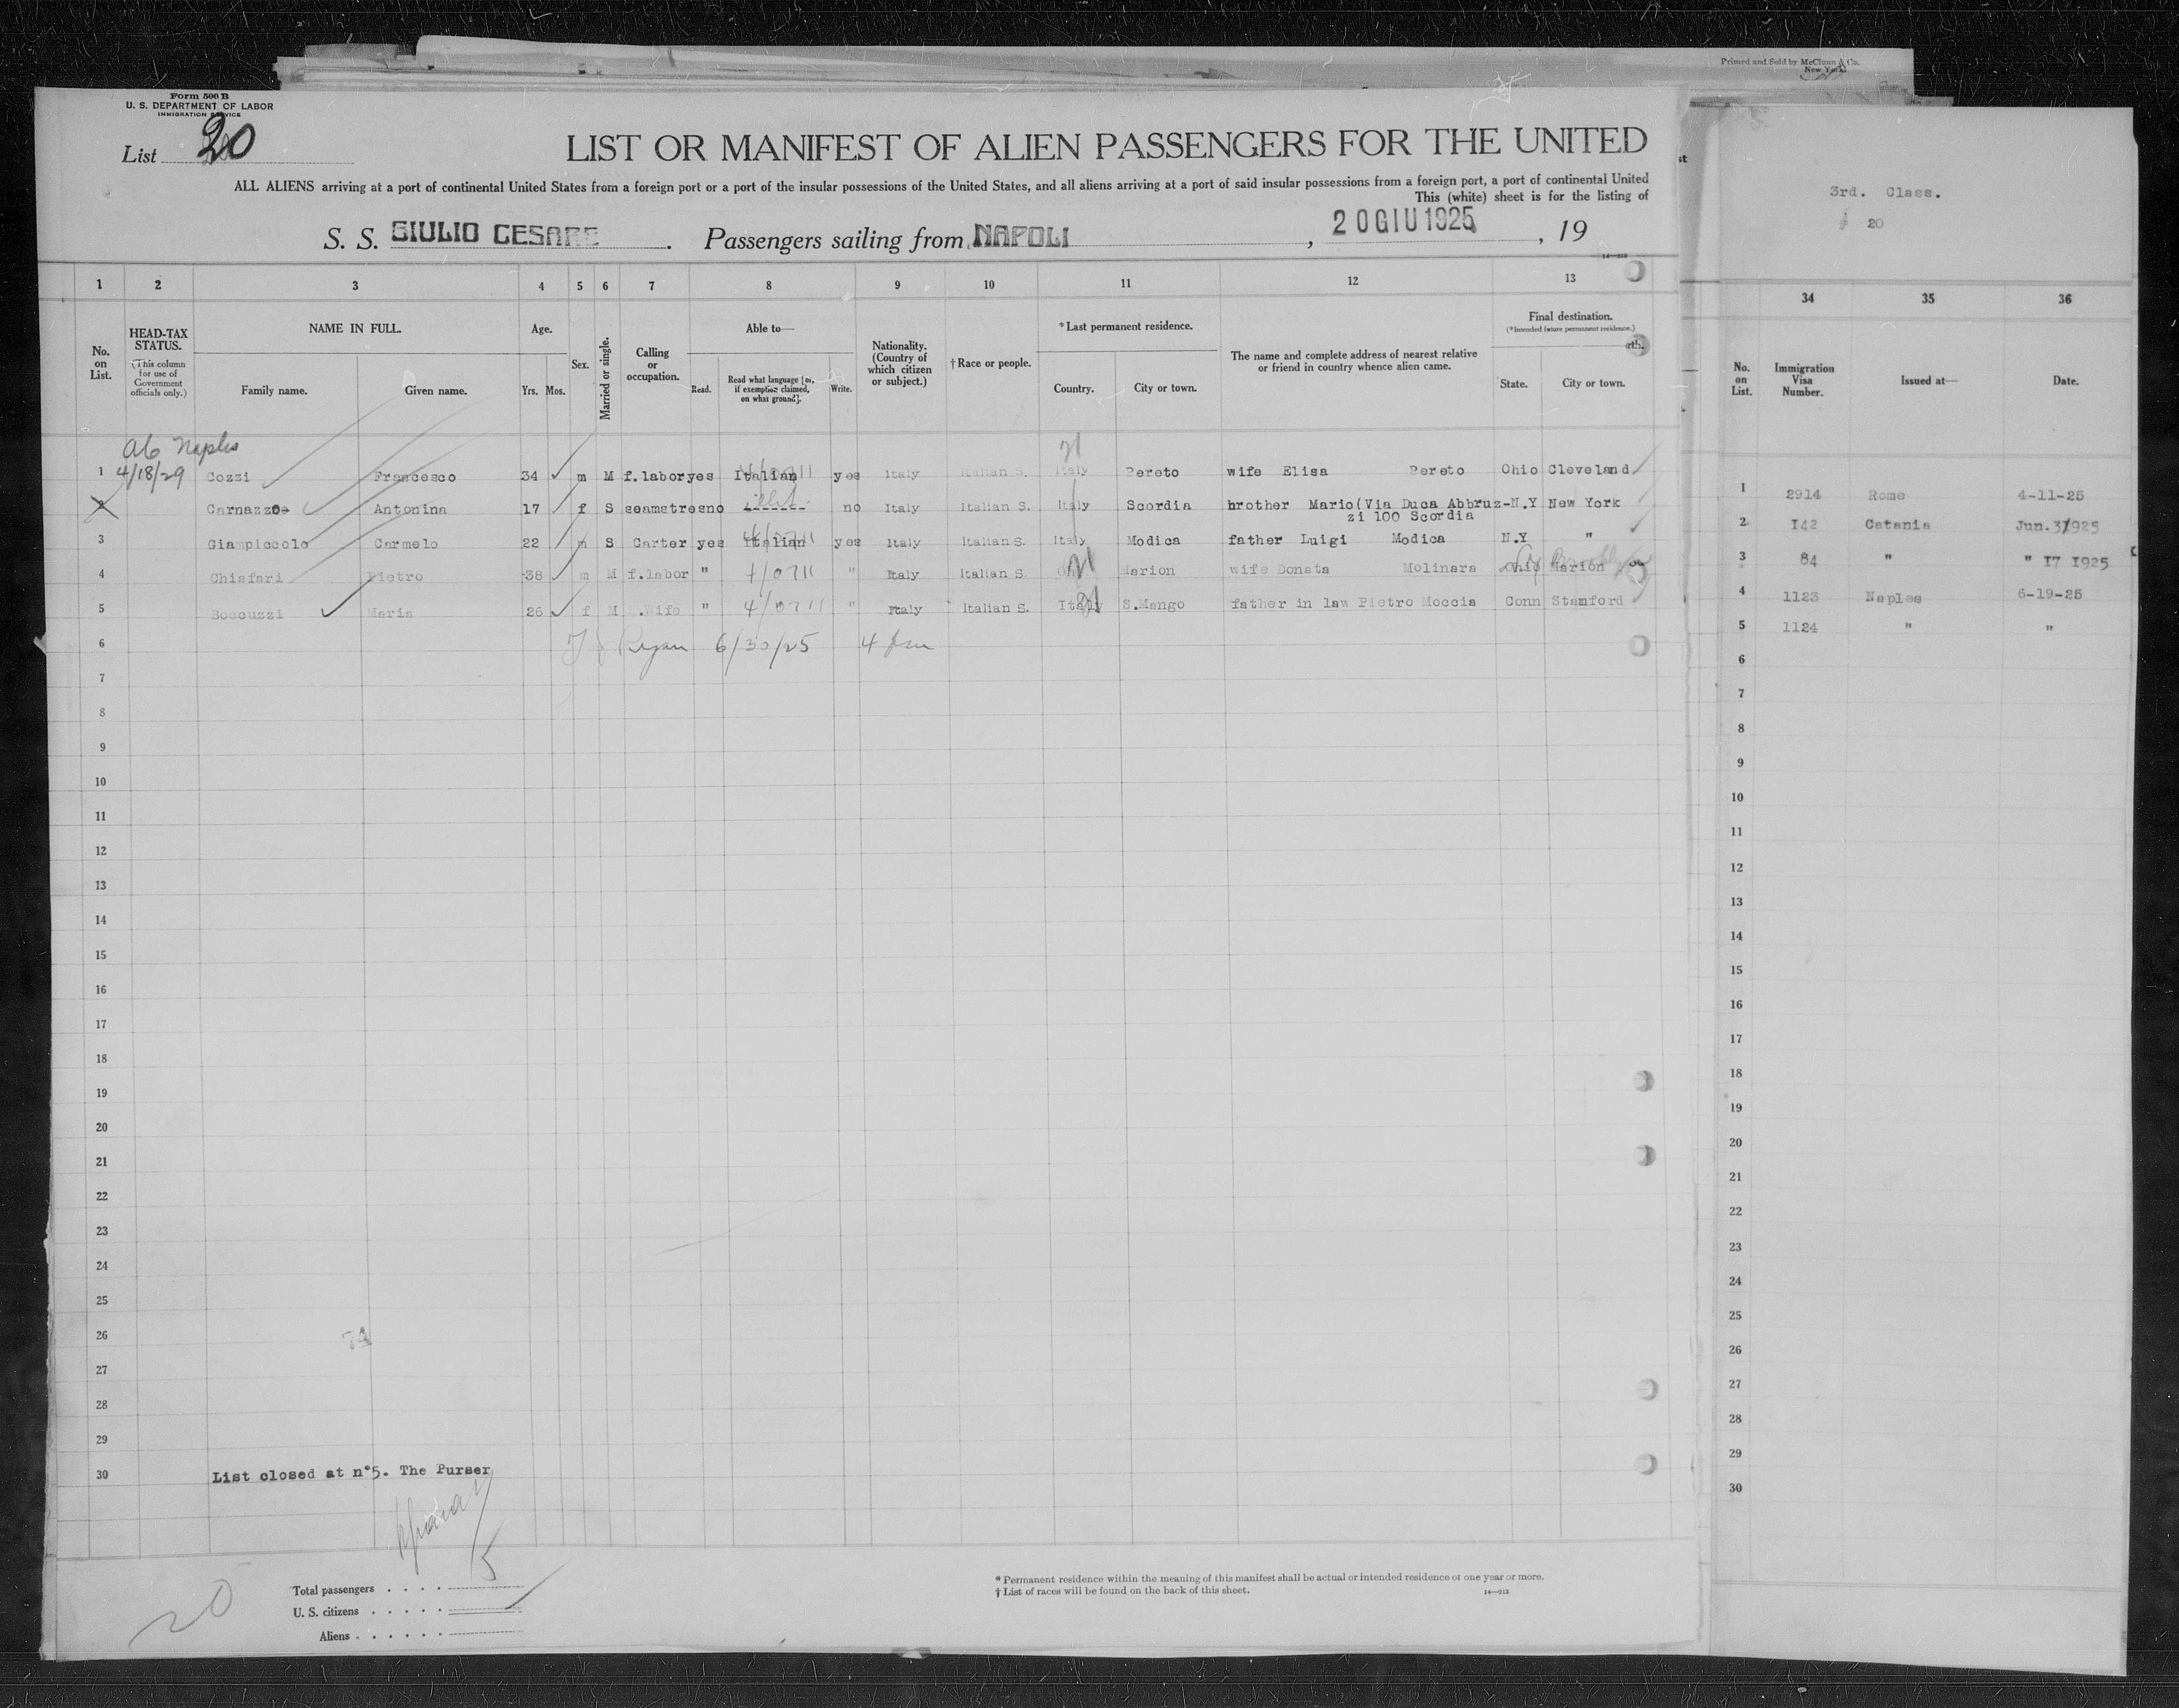 Printed and Sold by McClunn & Co.
New York
Form 500 B
U. S. DEPARTMENT OF LABOR
IMMIGRATION SERVICE
List 20
LIST OR MANIFEST OF ALIEN PASSENGERS FOR THE UNITED
ALL ALIENS arriving at a port of continental United States from a foreign port or a port of the insular possessions of the United States, and all aliens arriving at a port of said insular possessions from a foreign port, a port of continental United
This (white) sheet is for the listing of
3rd. Class.
20
S. S. GIULIO CESARE . Passengers sailing from NAPOLI , 20 GIU 1925 , 19
1 2 3 4 5 6 7 8 9 10 11 12 13
34 35 36
No. on List.
HEAD-TAX STATUS.
(This column for use of Government officials only.)
NAME IN FULL.
Family name. Given name.
Age.
Yrs. Mos.
Sex.
Married or single.
Calling or occupation.
Able to—
Read. Read what language [or, if exemption claimed, on what ground]. Write.
Nationality. (Country of which citizen or subject.)
†Race or people.
*Last permanent residence.
Country. City or town.
The name and complete address of nearest relative or friend in country whence alien came.
Final destination.
(*Intended future permanent residence.)
State. City or town.
No. on List. Immigration Visa Number. Issued at— Date.
Naples
1 4/18/29 Cozzi Francesco 34 m M f.labor yes Italian yes Italy Italian S. Italy Pereto wife Elisa Pereto Ohio Cleveland
2 Carnazzo Antonina 17 f S seamstres no ------- no Italy Italian S. Italy Scordia brother Mario(Via Duca Abbruz-N.Y New York
zi 100 Scordia
3 Giampiccolo Carmelo 22 m S Carter yes Italian yes Italy Italian S. Italy Modica father Luigi Modica N.Y "
4 Chiafari Pietro 38 m M f.labor " " Italy Italian S. Marion wife Donata Molinara Ohio Marion
5 Boccuzzi Maria 26 f M .Wife " " Italy Italian S. Italy S.Mango father in law Pietro Moccia Conn Stamford
6 Ryan 6/30/25
7
8
9
10
11
12
13
14
15
16
17
18
19
20
21
22
23
24
25
26
27
28
29
30 List closed at n°5. The Purser
5
20
Total passengers . . . .
U. S. citizens . . . . .
Aliens . . . . . .
* Permanent residence within the meaning of this manifest shall be actual or intended residence of one year or more.
† List of races will be found on the back of this sheet.
14—213
1 2914 Rome 4-11-25
2 I42 Catania Jun.3/1925
3 84 " " I7 I925
4 1123 Naples 6-19-25
5 1124 " "
6
7
8
9
10
11
12
13
14
15
16
17
18
19
20
21
22
23
24
25
26
27
28
29
30